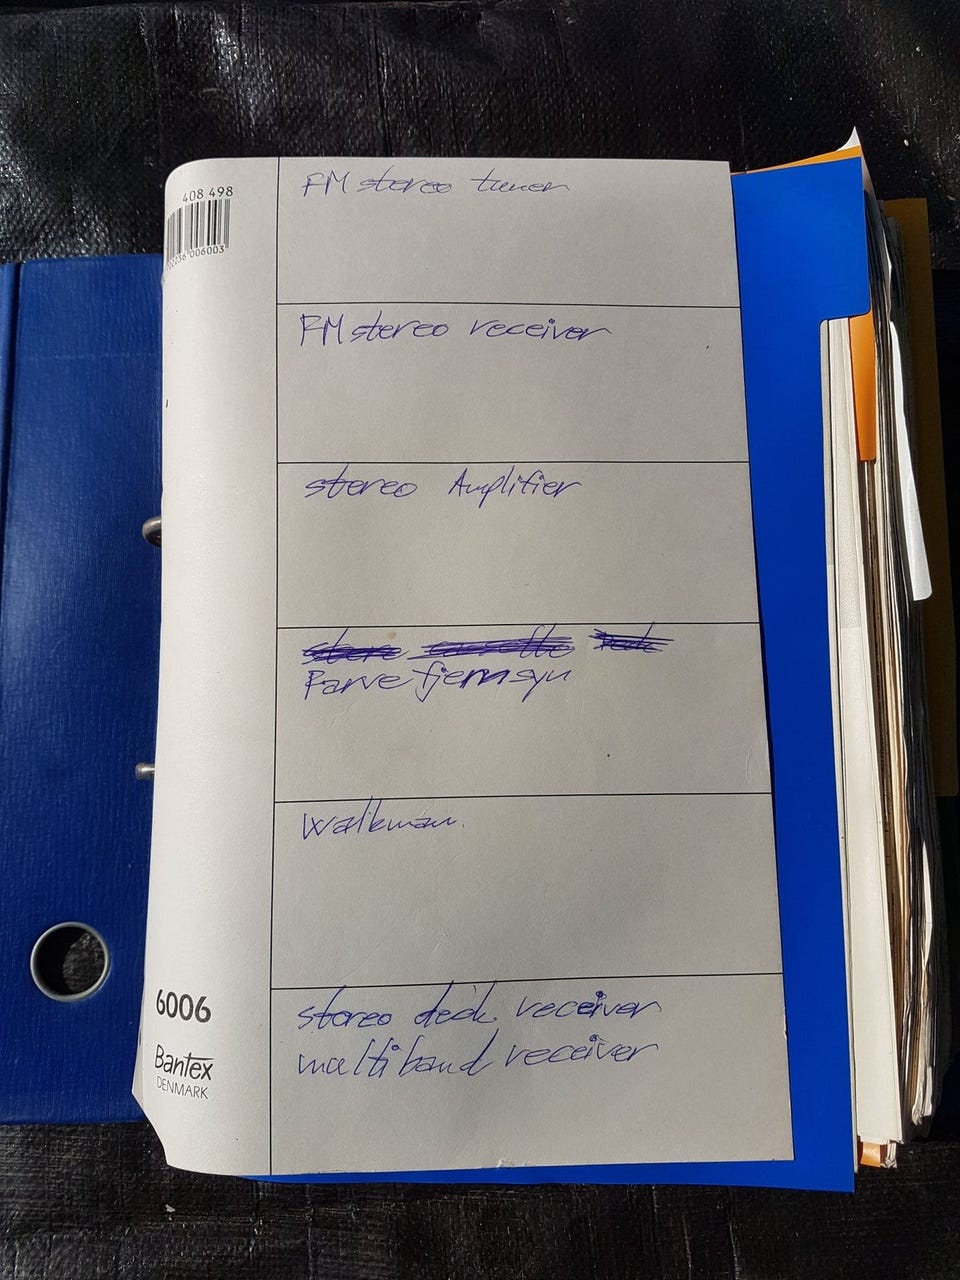 408 498
FM stereo tuner
FM stereo receiver
stereo Amplifier
stereo cassette Deck
Farve fjernsyn
Walkman.
stereo deck receiver
multiband receiver
6006
Bantex
DENMARK